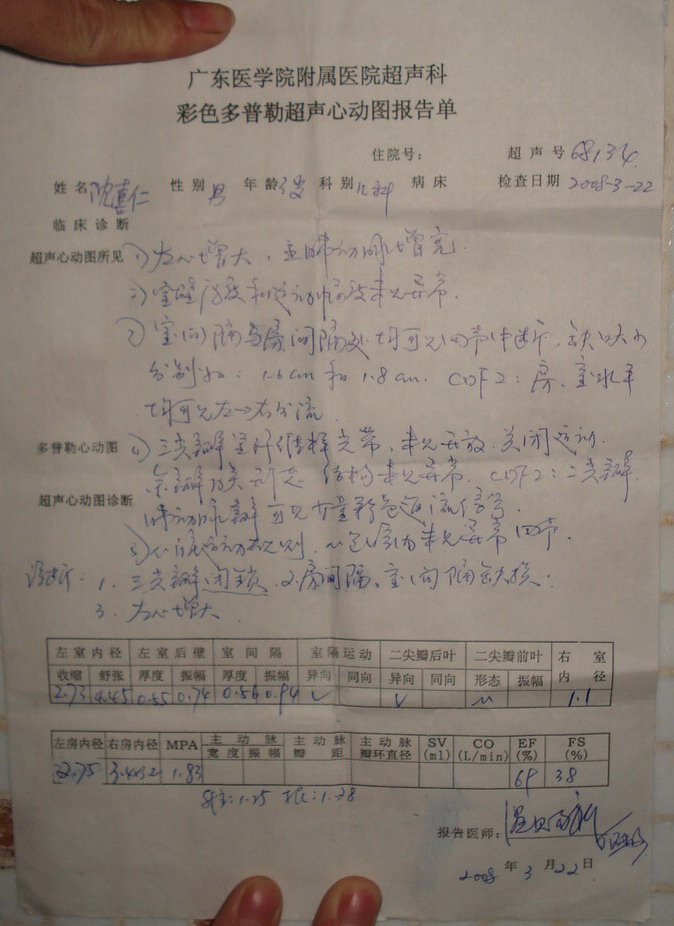 广东医学院附属医院超声科
彩色多普勒超声心动图报告单
住院号: 超声号 68134
姓名 沈喜仁 性别 男 年龄 3岁 科别 儿科 病床 检查日期 2008-3-22
临床诊断
超声心动图所见 1) 左心增大, 主肺动脉增宽.
2) 室壁厚度和运动幅度未见异常.
3) 室间隔与房间隔处均可见回声中断, 缺口大小
分别为: 1.6cm 和 1.8cm. CDFI: 房、室水平
均可见左→右分流.
多普勒心动图 4) 三尖瓣呈 样光带, 未见开放、关闭运动.
余瓣膜形态、结构未见异常. CDFI: 二尖瓣
超声心动图诊断 肺动脉瓣可见少量彩色返流信号.
5) 心 运动 规则, 心包腔内未见异常回声.
诊断: 1. 三尖瓣闭锁 2. 房间隔、室间隔缺损:
3. 左心增大
左室内径 左室后壁 室间隔 室隔运动 二尖瓣后叶 二尖瓣前叶 右室
收缩 舒张 厚度 振幅 厚度 振幅 异向 同向 异向 同向 形态 振幅 内径
2.73 4.45 0.55 0.74 0.56 0.94 √ √ M 1.1
左房内径 右房内径 MPA 主动脉 主动脉 主动脉 SV CO EF FS
宽度 振幅 瓣距 瓣环直径 (ml) (L/min) (%) (%)
2.75 1.83 69 38
1.25 1.28
报告医师:
2008 年 3 月 22 日